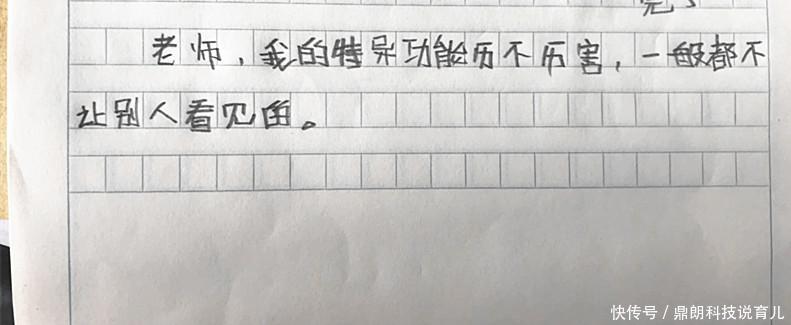 老师，我的特异功能历不历害，一般都不
让别人看见的。
快传号／鼎朗科技说育儿